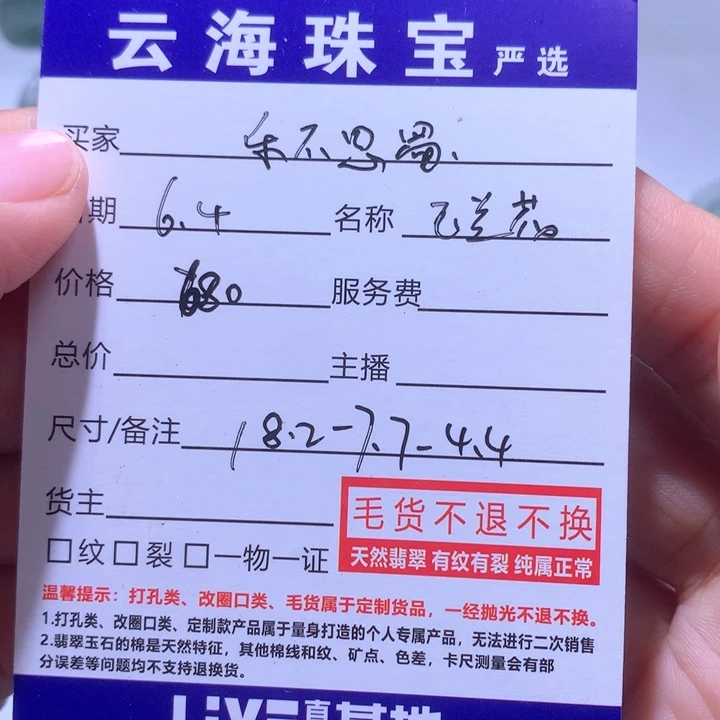 云海珠宝严选
买家 乐不思蜀
期 6.4 名称
价格 680 服务费
总价 主播
尺寸/备注 18.2-7.7-4.4
货主
毛货不退不换
□纹□裂□一物一证
天然翡翠 有纹有裂 纯属正常
温馨提示：打孔类、改圈口类、毛货属于定制货品，一经抛光不退不换。
1.打孔类、改圈口类、定制款产品属于量身打造的个人专属产品，无法进行二次销售
2.翡翠玉石的棉是天然特征，其他棉线和纹、矿点、色差，卡尺测量会有部
分误差等问题均不支持退换货。